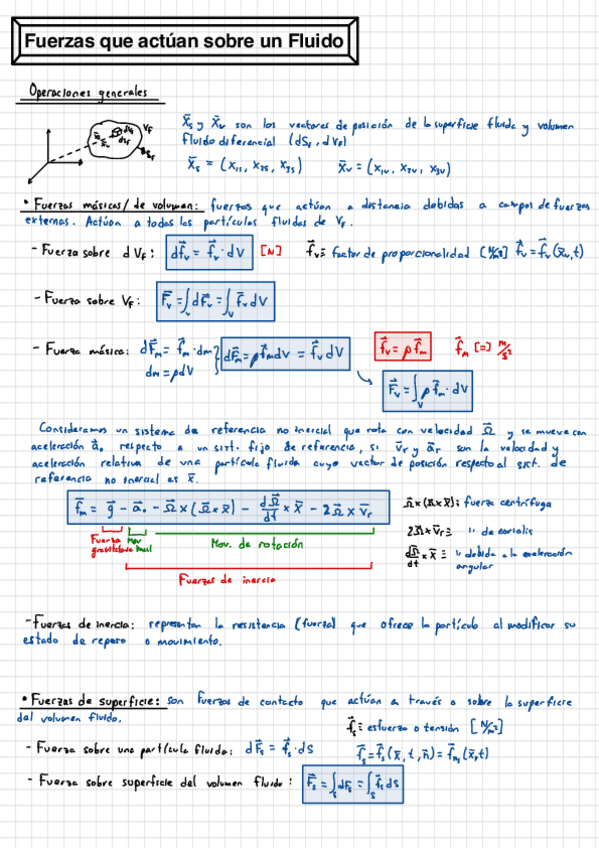 Fuerzas que actúan sobre un Fluido
Operaciones generales
x̄ₛ y x̄ᵥ son los vectores de posición de la superficie fluida y volumen
fluido diferencial (dS_f, dV_f)
x̄ₛ = (x₁ₛ, x₂ₛ, x₃ₛ) x̄ᵥ = (x₁ᵥ, x₂ᵥ, x₃ᵥ)
• Fuerzas másicas/de volumen: fuerzas que actúan a distancia debidas a campos de fuerzas
externas. Actúan a todas las partículas fluidas de V_f.
- Fuerza sobre dV_F: df⃗ᵥ = f⃗ᵥ · dV [N] f⃗ᵥ ≡ factor de proporcionalidad [N/m³] f⃗ᵥ = f⃗ᵥ(x̄ᵥ, t)
- Fuerza sobre V_F: F⃗ᵥ = ∫ᵥ dF⃗ᵥ = ∫ᵥ f⃗ᵥ dV
- Fuerza másica: dF⃗ₘ = f⃗ₘ · dm } dF⃗ₘ = ρ f⃗ₘ dV = f⃗ᵥ dV f⃗ᵥ = ρ f⃗ₘ f⃗ₘ [=] m/s²
dm = ρdV
F⃗ᵥ = ∫ᵥ ρ f⃗ₘ · dV
Consideramos un sistema de referencia no inercial que rota con velocidad Ω⃗ y se mueve con
aceleración a⃗₀ respecto a un sist. fijo de referencia, si v⃗ᵣ y a⃗ᵣ son la velocidad y
aceleración relativa de una partícula fluida cuyo vector de posición respecto al sist. de
referencia no inercial es x̄.
f⃗ₘ = g⃗ - a⃗₀ - Ω⃗ × (Ω⃗ × x̄) - dΩ⃗/dt × x̄ - 2Ω⃗ × v⃗ᵣ
Ω × (Ω × x̄): fuerza centrífuga
2Ω × v⃗ᵣ ≡ " de coriolis
dΩ⃗/dt × x̄ ≡ " debida a la aceleración
angular
Fuerza
gravitatoria
Mov
lineal
Mov. de rotación
Fuerzas de inercia
- Fuerzas de inercia: representan la resistencia (fuerza) que ofrece la partícula al modificar su
estado de reposo o movimiento.
• Fuerzas de superficie: son fuerzas de contacto que actúan a través o sobre la superficie
del volumen fluido.
f⃗ₛ ≡ esfuerzo o tensión [N/m²]
- Fuerza sobre una partícula fluida: dF⃗ₛ = f⃗ₛ · dS f⃗ₛ = f⃗ₛ(x̄, t, n̄) = f⃗ₙₛ(x̄, t)
- Fuerza sobre superficie del volumen fluido: F⃗ₛ = ∫ₛ dFₛ = ∫ₛ f⃗ₛ ds